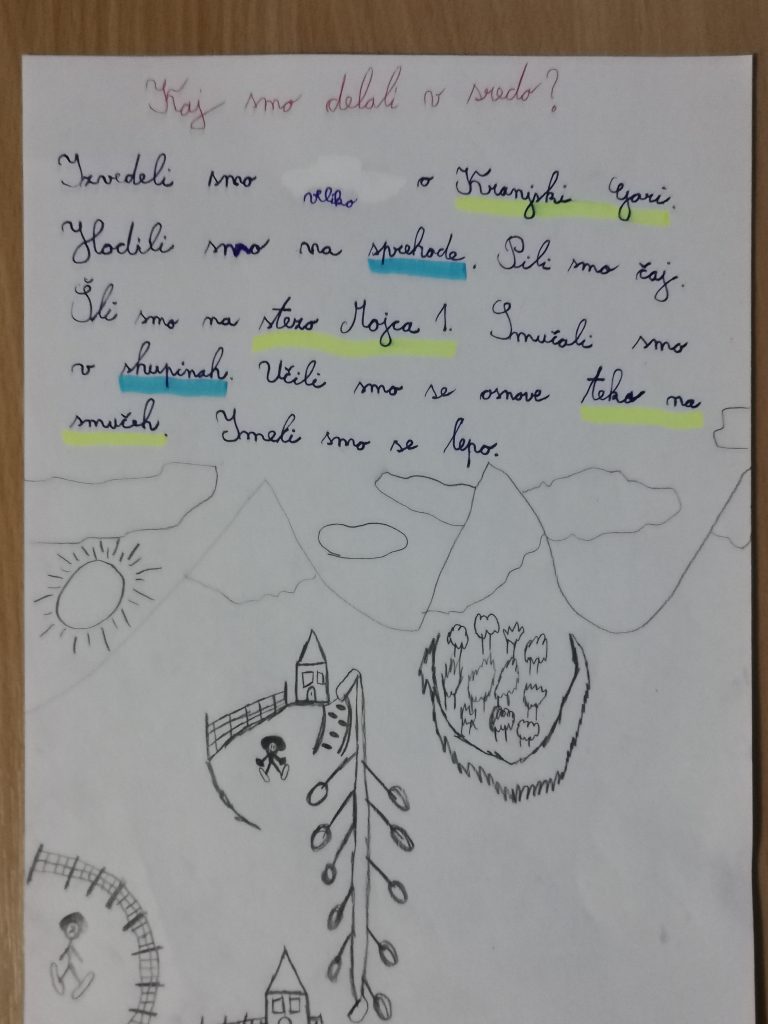 Kaj smo delali v sredo?
Izvedeli smo veliko o Kranjski Gori.
Hodili smo na sprehode. Pili smo čaj.
Šli smo na stezo Mojca 1. Smučali smo
v skupinah. Učili smo se osnove teka na
smučeh. Imeli smo se lepo.